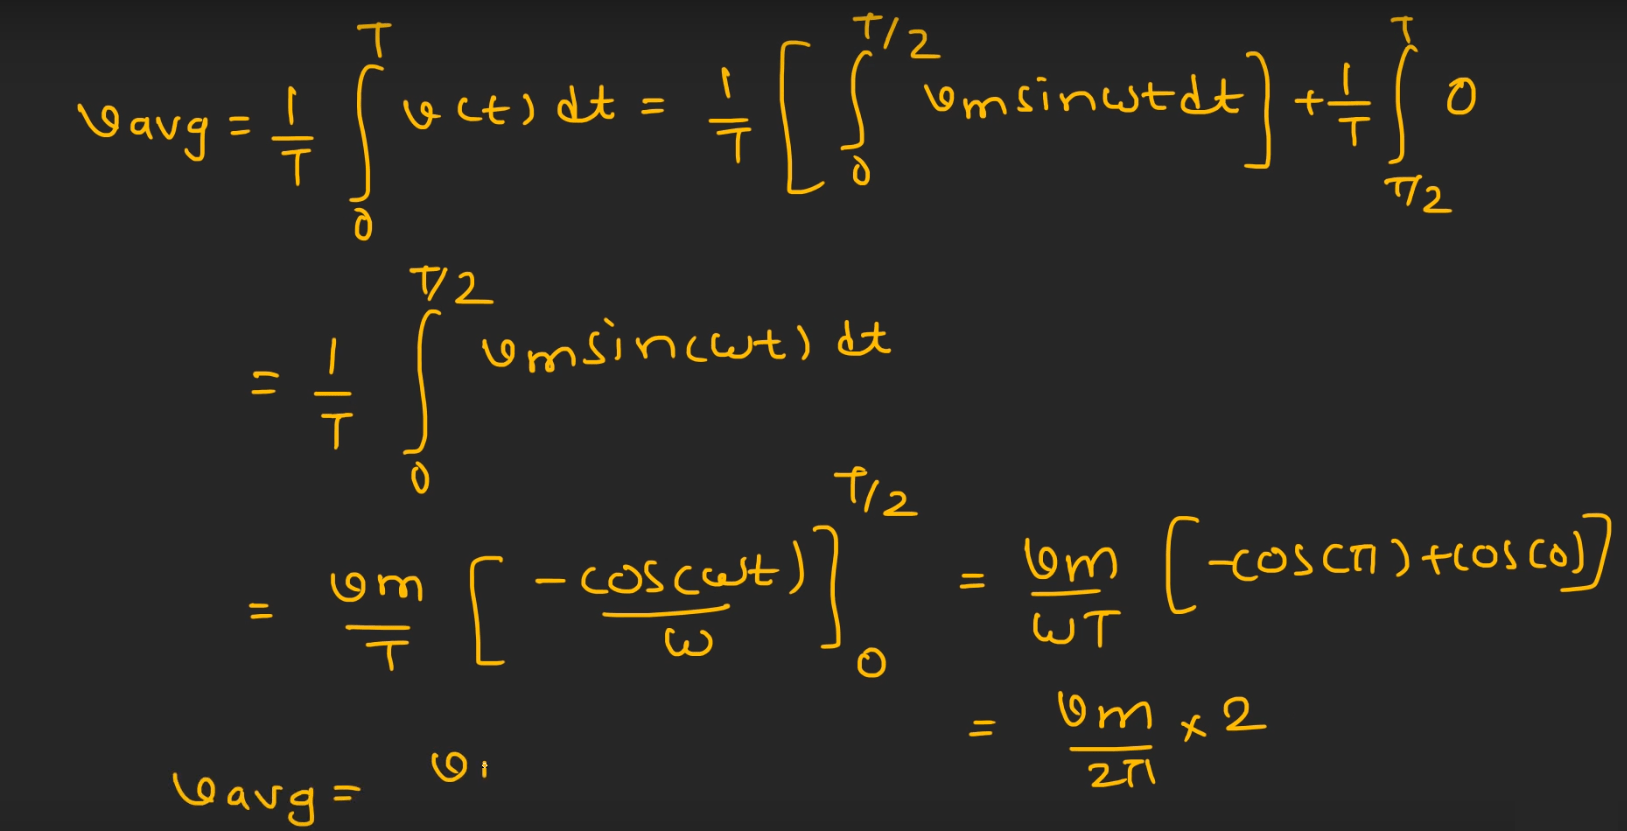 vavg = 1/T ∫₀ᵀ v(t) dt = 1/T [ ∫₀^{T/2} vm sinωt dt ] + 1/T ∫_{T/2}^{T} 0
= 1/T ∫₀^{T/2} vm sin(ωt) dt
= vm/T [ -cos(ωt)/ω ]₀^{T/2} = vm/ωT [ -cos(π) + cos(0) ]
= vm/2π × 2
vavg = v